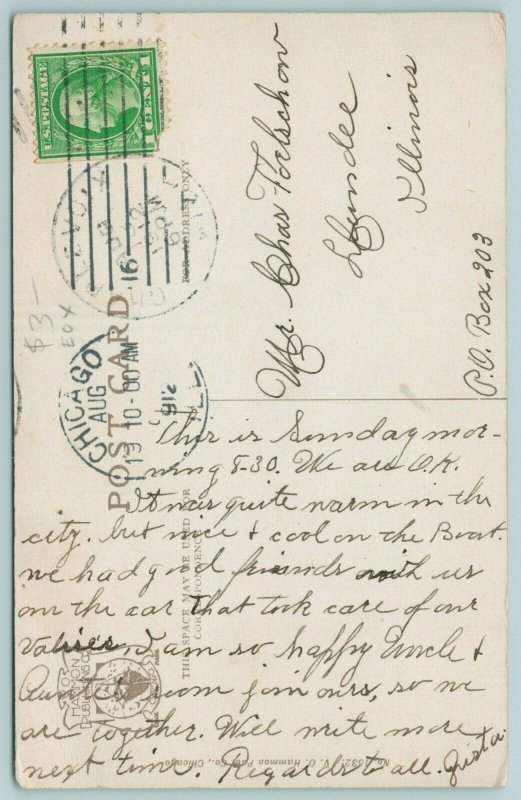 U.S. POSTAGE
1 CENT 1
CHICAGO
AUG
19 10-00AM
ILL.
POST CARD
FOR ADDRESS ONLY
THIS SPACE MAY BE USED FOR
CORRESPONDENCE
$3-
EOX
Mr. Chas
Dundee
Illinois
P.O. Box 203
This is Sunday mor-
ning 8-30. We are O.K.
It was quite warm in the
city. but nice & cool on the Boat.
we had good friends with us
on the car that took care of our
Valises, I am so happy Uncle &
Aunt's room join ours, so we
are together. Will write more
next time. Regards to all.
V. O. Hammon Pub. Co., Chicago